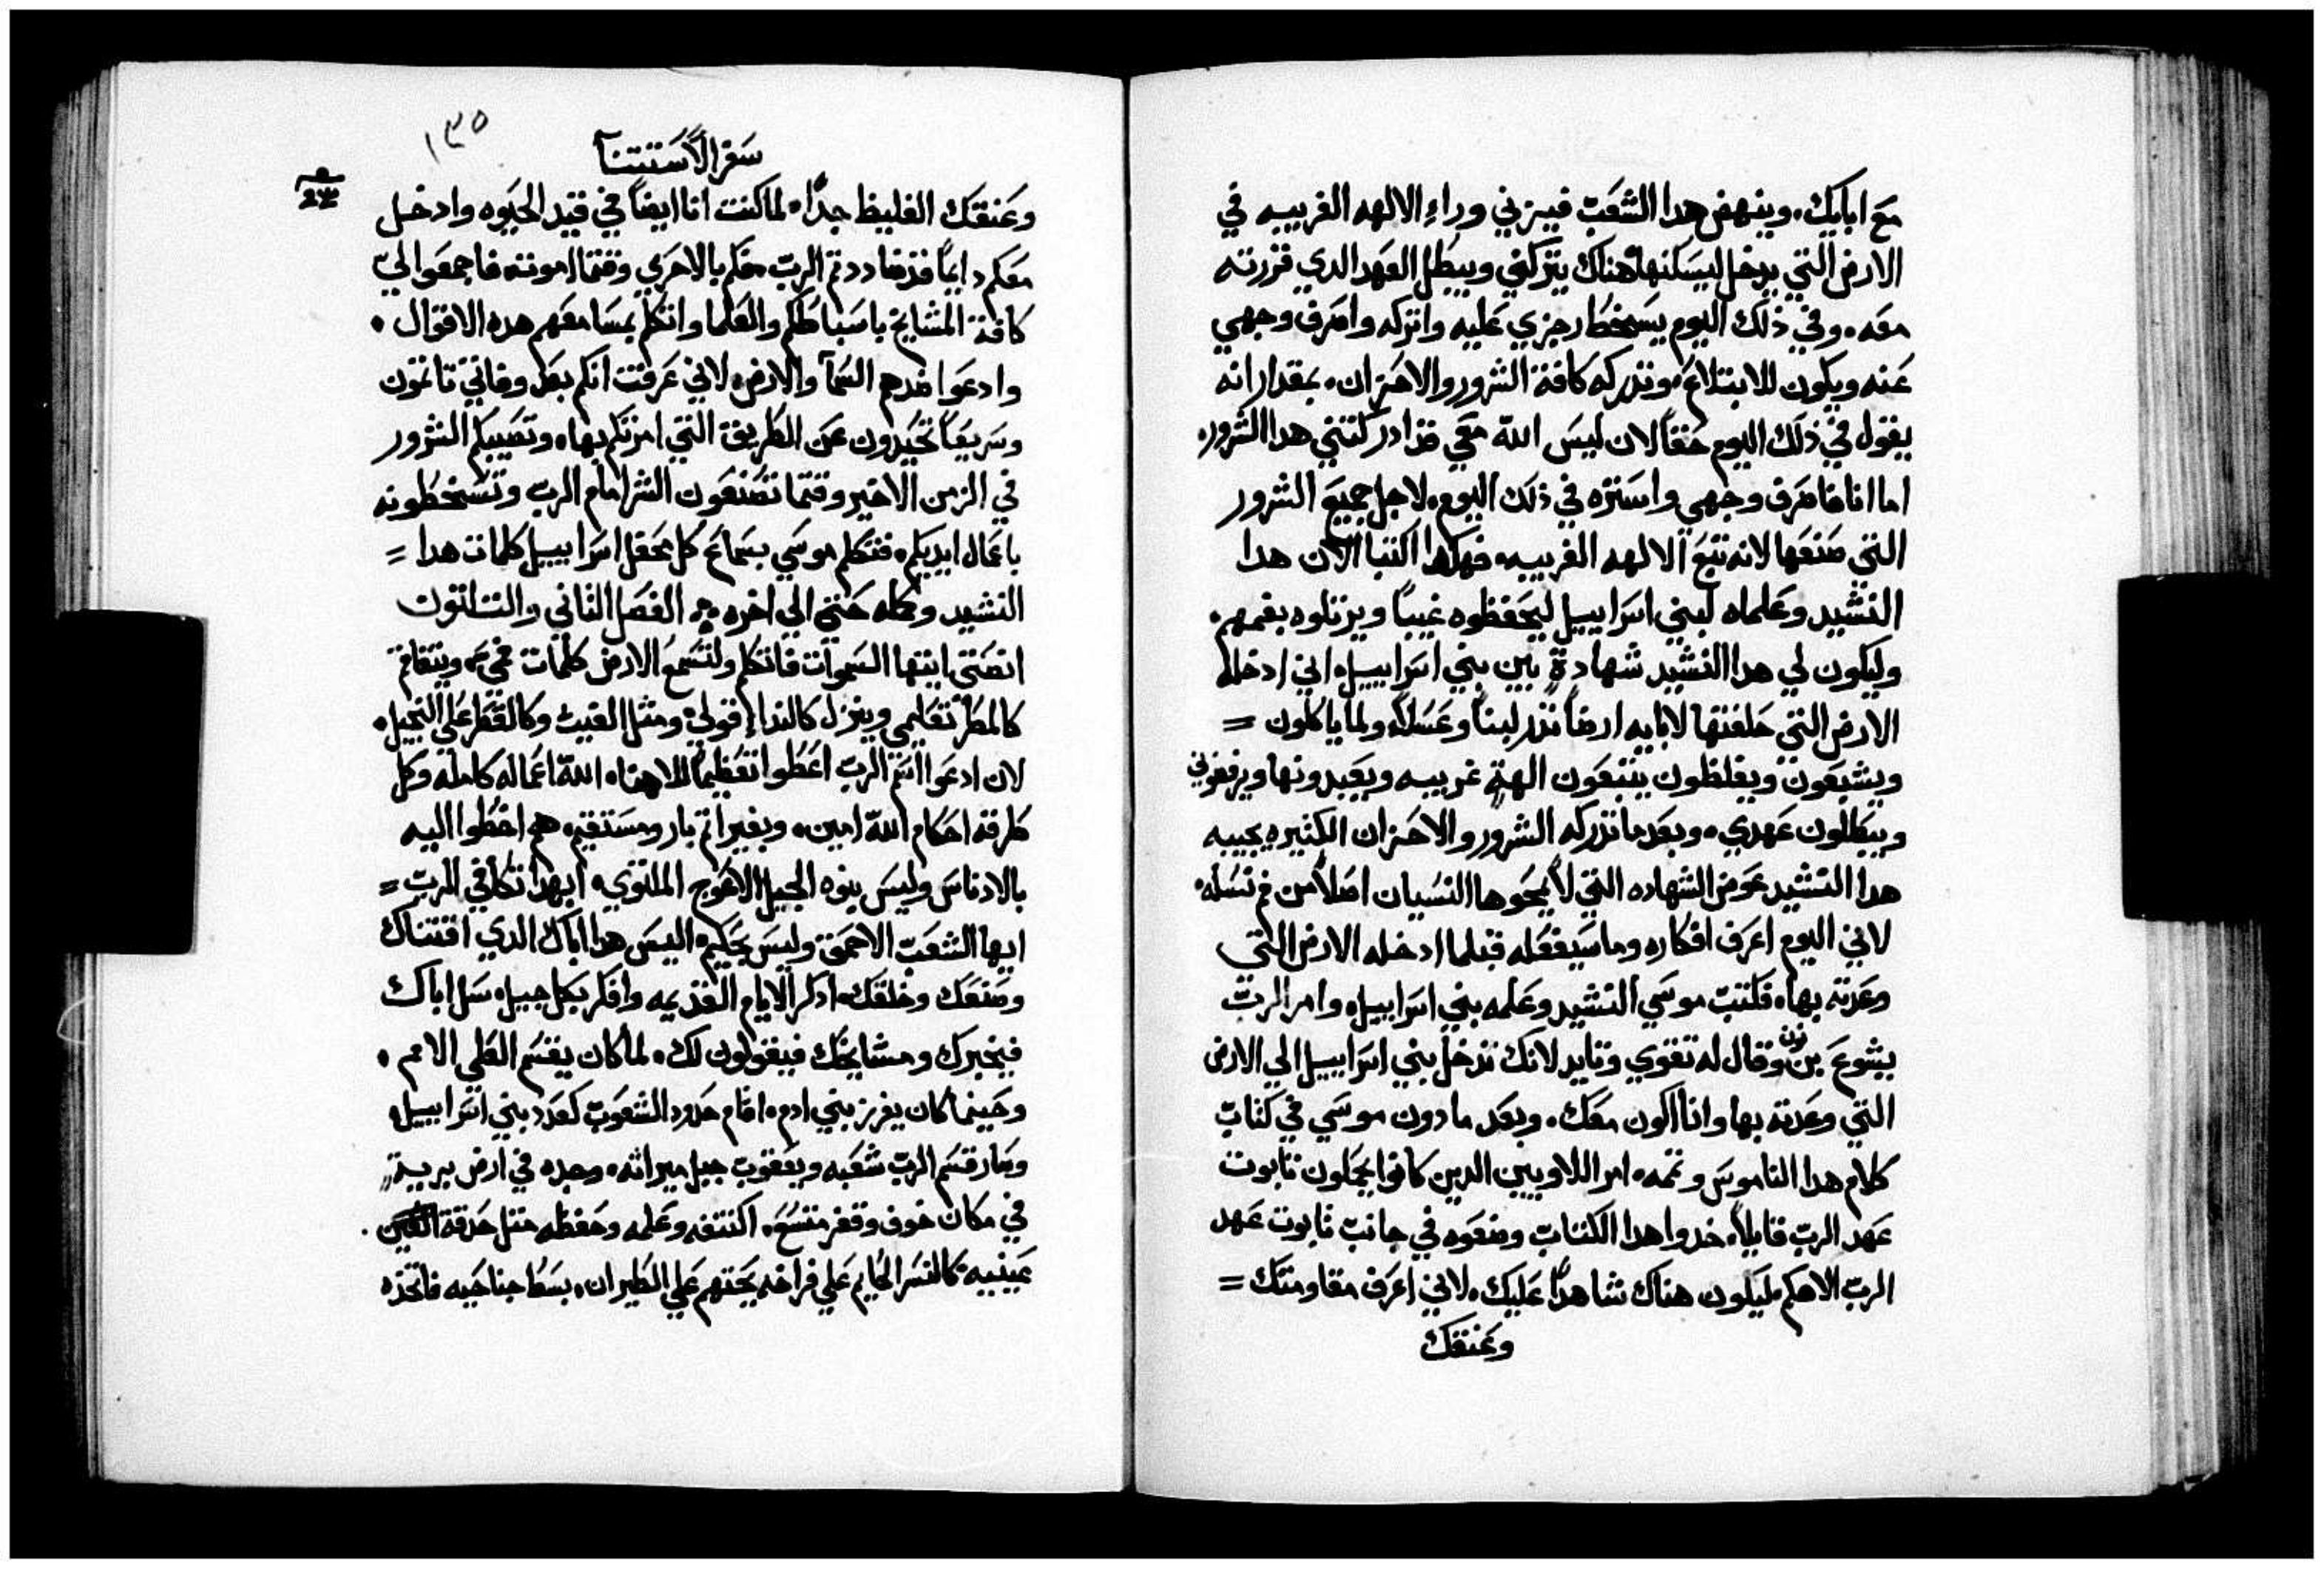 مع ابايك. وينهض هدا الشعب فيزني وراء الالهه الغريبه في
الارض التي يدخل ليسكنها هناك يتركني ويبطل العهد الدي قررته
معه. وفي ذلك اليوم يسخط رجزي عليه واتركه واصرف وجهي
عنه ويكون للابتلاع. وتدركه كافة الشرور والاحزان. بمقدار انه
يقول في ذلك اليوم حقاً لان ليس الله معي قد ادركتني هدا الشرور.
اما انا فاصرف وجهي واستره في ذلك اليوم. لاجل جميع الشرور
التي صنعها لانه تتبع الالهه الغريبه. فهكدا اكتبا الان هدا
النشيد وعلماه لبني اسراييل ليحفظوه غيباً ويرتلوه بفمهم.
وليكون لي هدا النشيد شهادةً بين بني اسراييل. اني ادخله
الارض التي حلفتها لابايه ارضاً تدر لبناً وعسلاً. ولما ياكلون =
ويشبعون ويغلظون يتبعون الهةً غريبه ويعبدونها ويرفضوني
ويبطلون عهدي. وبعد ما تدركه الشرور والاحزان الكثيره يجيبه
هدا النشيد عوض الشهاده التي لا يمحوها النسيان اصلاً من فم نسله.
لاني اليوم اعرف افكاره وما سيفعله قبلما ادخله الارض التي
وعدته بها. فكتب موسي النشيد وعلمه بني اسراييل. وامر الرب
يشوع بن نون وقال له تقوي وتايد لانك تدخل بني اسراييل الي الارض
التي وعدته بها وانا اكون معك. وبعد ما دون موسي في كتاب
كلام هدا الناموس وتمه. امر اللاويين الدين كانوا يحملون تابوت
عهد الرب قايلاً. خدوا هدا الكتاب وضعوه في جانب تابوت عهد
الرب الاهكم ليكون هناك شاهداً عليك. لاني اعرف مقاومتك =
وعنقك
١٣٥
سفر الاستتنا
وعنقك الغليظ جداً. لما كنت انا ايضاً في قيد الحيوه وادخل
معكم دايماً قد ضاددتم الرب فكم بالاحري وقتما اموت. فاجمعوا الي
كافة المشايخ باسباطكم والعلما واتكلم بمسامعهم هده الاقوال.
وادعوا ضدهم السمآ والارض. لاني عرفت انكم بعد وفاتي تاتمون
وسريعاً تحيدون عن الطريق التي امرتكم بها. وتصيبكم الشرور
في الزمن الاخير وقتما تصنعون الشر امام الرب وتسخطونه
باعمال ايديكم. فتكلم موسي بسماع كل محفل اسراييل كلمات هدا =
النشيد وكمله حتي الي اخره. الفصل الثاني والتلتون
انصتي ايتها السموات فاتكلم ولتسمع الارض كلمات فمي.
كالمطر تعليمي وينزل كالندا قولي. ومثل الغيث وكالقطر علي النجيل.
لان ادعوا اسم الرب اعطوا تعظيماً لالاهنا. الله اعماله كامله وكل
طرقه احكام الله امين. وبغير اتم بار ومستقيم. هم اخطوا اليه
بالادناس وليس بنوه الجيل الاهوج الملتوي. ابهدا تكافي الرب =
ايها الشعب الاحمق وليس بحكيم. اليس هدا اباك الدي اقتناك
وصنعك وخلقك. ادكر الايام القديمه وافكر بكل جيل. سل اباك
فيخبرك ومشايخك فيقولون لك. لما كان يقسم العلي الامم.
وحينما كان يفرز بني ادم. اقام حدود الشعوب كعدد بني اسراييل.
وصار قسم الرب شعبه ويعقوب حبل ميراثه. وجده في ارض بريةٍ
في مكان خوف وقفر متسع. اكتنفه وعلمه وحفظه مثل حدقة
عينيه. كالنسر الحايم علي فراخه يحتهم علي الطيران. بسط جناحيه فاتخذه